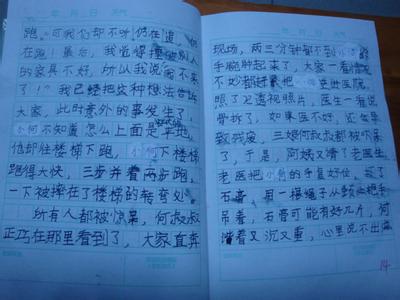 年 月 日 天气
跑。可我们却不听仍在追，仍
在跑！最后，我觉得撞破别人
的家具不好，所以我说闹不来
了！"我已经把这种想法告诉
大家，此时意外的事发生了，
小何不知道怎么上面是平地，
他却往楼梯下跑，小何下楼梯
跑得太快，三步并着两步跑，
一下被摔在了楼梯的转弯处。
所有人都被惊呆，何叔叔
正巧在那里看到了，大家直奔
年 月 日 天气
现场，两三分钟都不到
手腕肿起来了，大家一看情况
不妙都赶紧把小何送进医院，
照了X透视照片，医生一看说
骨折了，如果医不好，还会导
致残废，三娘何叔叔都被吓呆
了，于是，阿姨又请了老医生，
老医把小何的手复好位，敷了
石膏，用一根绳子从颈上把手
吊着，石膏可能有好几斤，何
吊着又沉又重，心里说不出
14